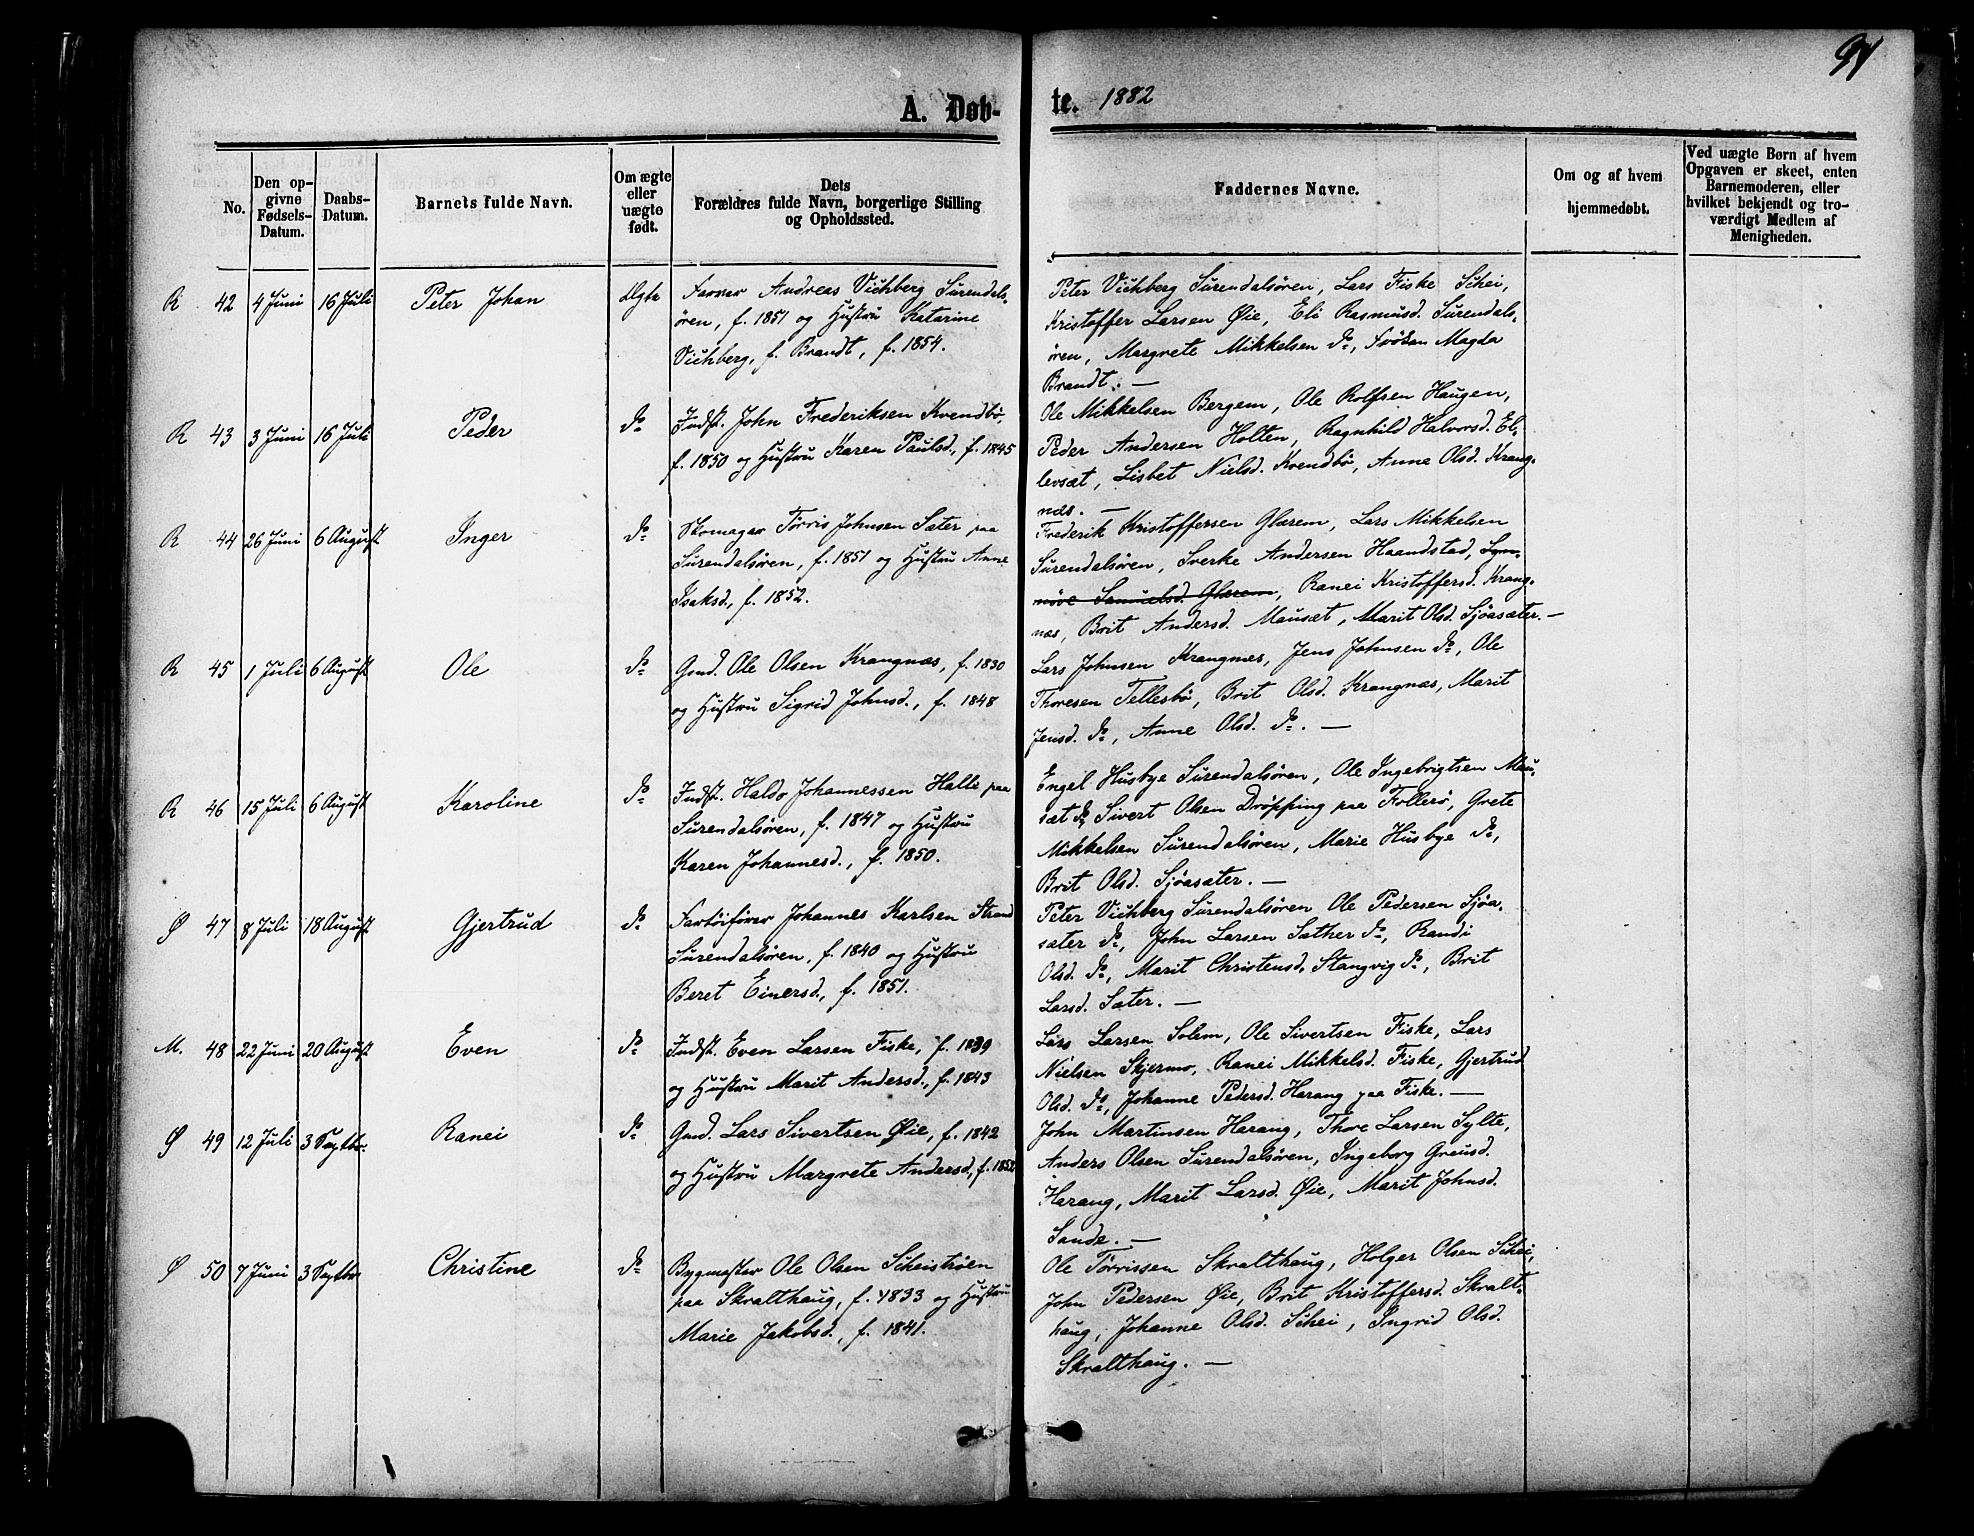 94
A. Døb-
te. 1882
No.
Den op-
givne
Fødsels-
Datum.
Daabs-
Datum.
Barnets fulde Navn.
Om ægte
eller
uægte
født.
Dets
Forældres fulde Navn, borgerlige Stilling
og Opholdssted.
Faddernes Navne.
Om og af hvem
hjemmedøbt.
Ved uægte Børn af hvem
Opgaven er skeet, enten
Barnemoderen, eller
hvilket bekjendt og tro-
værdigt Medlem af
Menigheden.
R 42 4 Juni 16 Juli Peter Johan Ægte
Farver Andreas Vichberg Surendals-
ören, f. 1851 og Hustru Katarine
Vichberg, f. Brandt, f. 1854.
Peter Vichberg Surendalsören, Lars Fiske Schei,
Kristoffer Larsen Øie, Eli Rasmusd. Surendals-
ören, Margrete Mikkelsen do, Magda
Brandt. —
R 43 3 Juni 16 Juli Peder do
Indst. John Frederiksen Kvendbö,
f. 1850 og Hustru Karen Paulsd., f. 1845
Ole Mikkelsen Bergem, Ole Rolfsen Haugen,
Peder Andersen Holten, Ragnhild Halvorsd. El-
levsæt, Lisbet Nielsd. Kvendbö, Anne Olsd. Krang-
næs. —
R 44 26 Juni 6 August Inger do
Skomager Törris Johnsen Sæter paa
Surendalsören, f. 1851 og Hustru Anne
Isaksd., f. 1852.
Frederik Kristoffersen Glærem, Lars Mikkelsen
Surendalsören, Sverke Andersen Haandstad, Syn-
növe Samuelsd. Glærem, Ranei Kristoffersd. Krang-
næs, Brit Andersd. Mausæt, Marit Olsd. Sjöasæter. —
R 45 1 Juli 6 August Ole do
Gmd. Ole Olsen Krangnæs, f. 1830
og Hustru Sigrid Johnsd., f. 1848
Lars Johnsen Krangnæs, Jens Johnsen do, Ole
Thoresen Tellesbö, Brit Olsd. Krangnæs, Marit
Jensd. do, Anne Olsd. do. —
R 46 15 Juli 6 August Karoline do
Indst. Haldo Johannessen Halle paa
Surendalsören, f. 1847 og Hustru
Karen Johannesd., f. 1850.
Engel Husbye Surendalsören, Ole Ingebrigtsen Mau-
sæt do, Sivert Olsen Dröpping paa Follerö, Grete
Mikkelsen Surendalsören, Marie Husbye do,
Brit Olsd. Sjöasæter. —
Ø 47 8 Juli 18 August Gjertrud do
Fartöifører Johannes Karlsen Strand
Surendalsören, f. 1840 og Hustru
Beret Einersd., f. 1851.
Peter Vichberg Surendalsören Ole Pedersen Sjöa-
sæter do, John Larsen Sæther do, Randi
Olsd. do, Marit Christensd. Stangvig do, Brit
Larsd. Sæter. —
M. 48 22 Juni 20 August Even do
Indst. Even Larsen Fiske, f. 1839
og Hustru Marit Andersd., f. 1843
Lars Larsen Solem, Ole Sivertsen Fiske, Lars
Nielsen Skjermo, Ranei Mikkelsd. Fiske, Gjertrud
Olsd. do, Johanne Pedersd. Harang paa Fiske. —
Ø 49 12 Juli 3 Septbr. Ranei do
Gmd. Lars Sivertsen Øie, f. 1842
og Hustru Margrete Andersd., f. 1852
John Martinsen Harang, Thore Larsen Sylte,
Anders Olsen Surendalsören, Ingeborg Greusd.
Harang, Marit Larsd. Øie, Marit Johnsd.
Sande. —
Ø 50 7 Juni 3 Septbr Christine do
Bygmester Ole Olsen Scheiströen
paa Skralthaug, f. 1833 og Hustru
Marie Jakobsd., f. 1841.
Ole Törrissen Skralthaug, Holger Olsen Schei,
John Pedersen Øie, Brit Kristoffersd. Skralt-
haug, Johanne Olsd. Schei, Ingrid Olsd.
Skralthaug. —